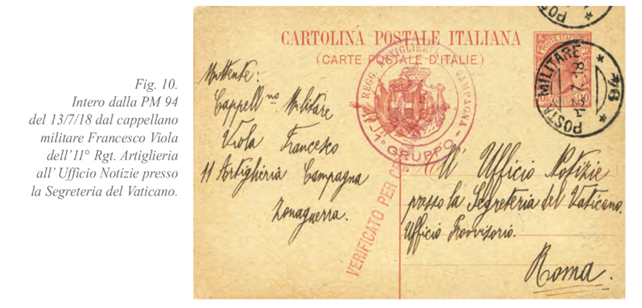 Fig. 10.
Intero dalla PM 94
del 13/7/18 dal cappellano
militare Francesco Viola
dell'11° Rgt. Artiglieria
all'Ufficio Notizie presso
la Segreteria del Vaticano.
CARTOLINA POSTALE ITALIANA
(CARTE POSTALE D'ITALIE)
POSTA MILITARE
REGG. ARTIGLIERIA CAMPAGNA
GRUPPO
Mittente:
Cappell.no Militare
Viola Francesco
11 Artiglieria Campagna
Zonaguerra.
VERIFICATO PER
All' Ufficio Notizie
presso la Segreteria del Vaticano.
Ufficio Provvisorio.
Roma.